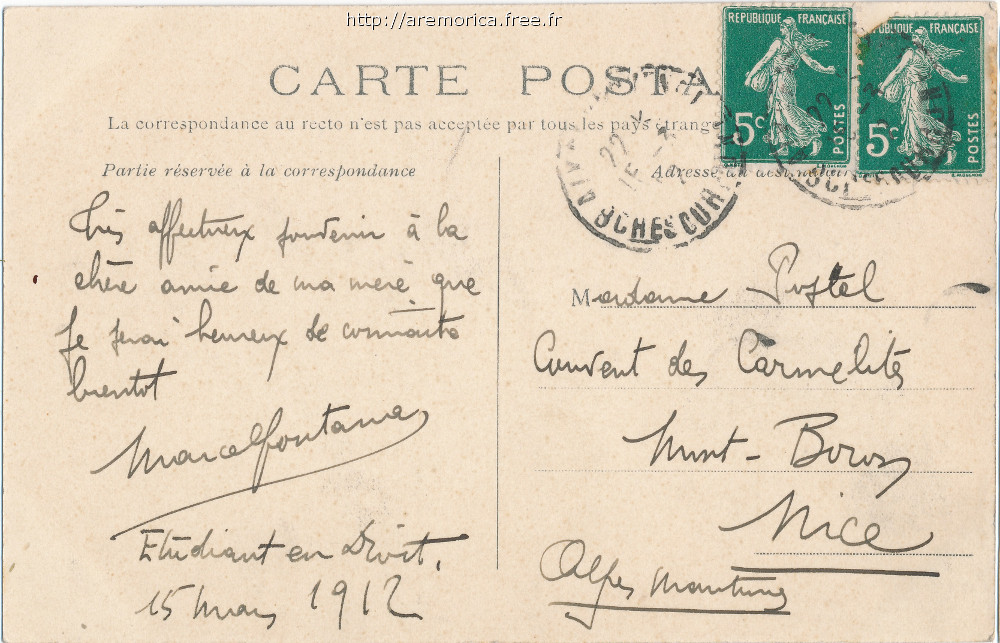 http://aremorica.free.fr
CARTE POSTA
La correspondance au recto n'est pas acceptée par tous les pays étrange
Partie réservée à la correspondance
Adresse du destinataire
REPUBLIQUE FRANÇAISE
5c
POSTES
REPUBLIQUE FRANÇAISE
5c
POSTES
22
15
BCHES DU RH
Très affectueux souvenir à la
chère amie de ma mère que
je serai heureux de connaître
bientot
Marcel Fontana
Etudiant en Droit.
15 Mars 1912
Madame Postel
Couvent des Carmelites
Mont-Boron
Nice
Alpes Maritimes